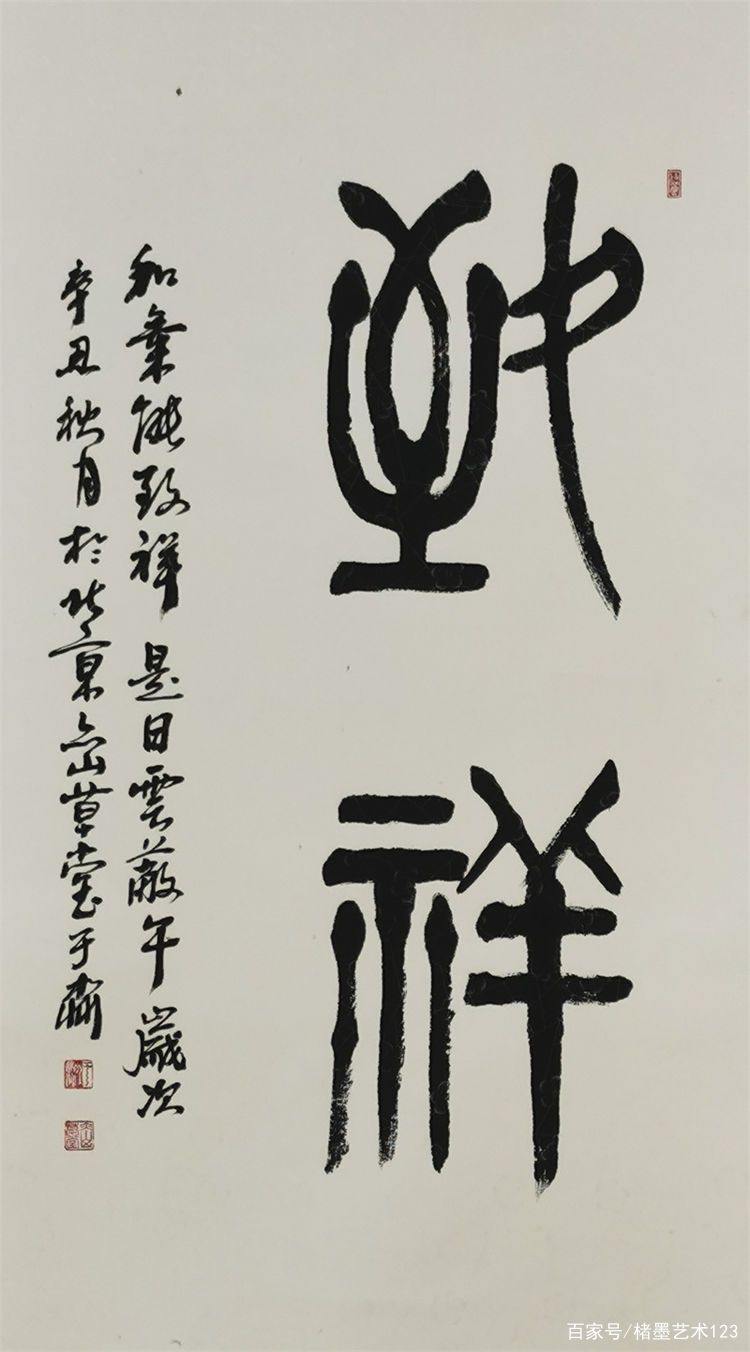 致祥
和氣能致祥 是日雲蔽午 歲次
辛丑秋月於北京山草堂于
百家号/楮墨艺术123